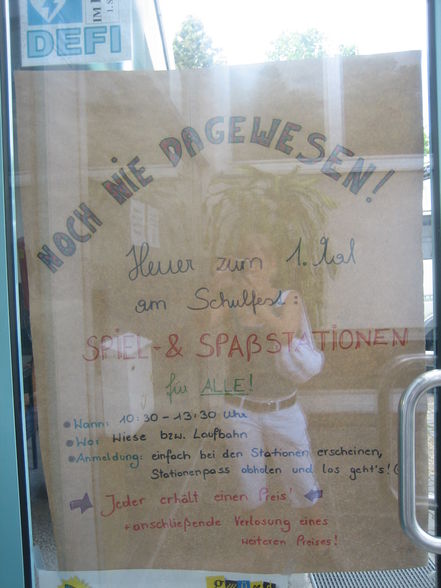 DEFI
NOCH NIE DAGEWESEN!
Heuer zum 1. Mal
am Schulfest:
SPIEL- & SPAßSTATIONEN
für ALLE!
Wann: 10:30 - 13:30 Uhr
Wo: Wiese bzw. Laufbahn
Anmeldung: einfach bei den Stationen erscheinen,
Stationenpass abholen und los geht's!
Jeder erhält einen Preis!
+ anschließende Verlosung eines
weiteren Preises!